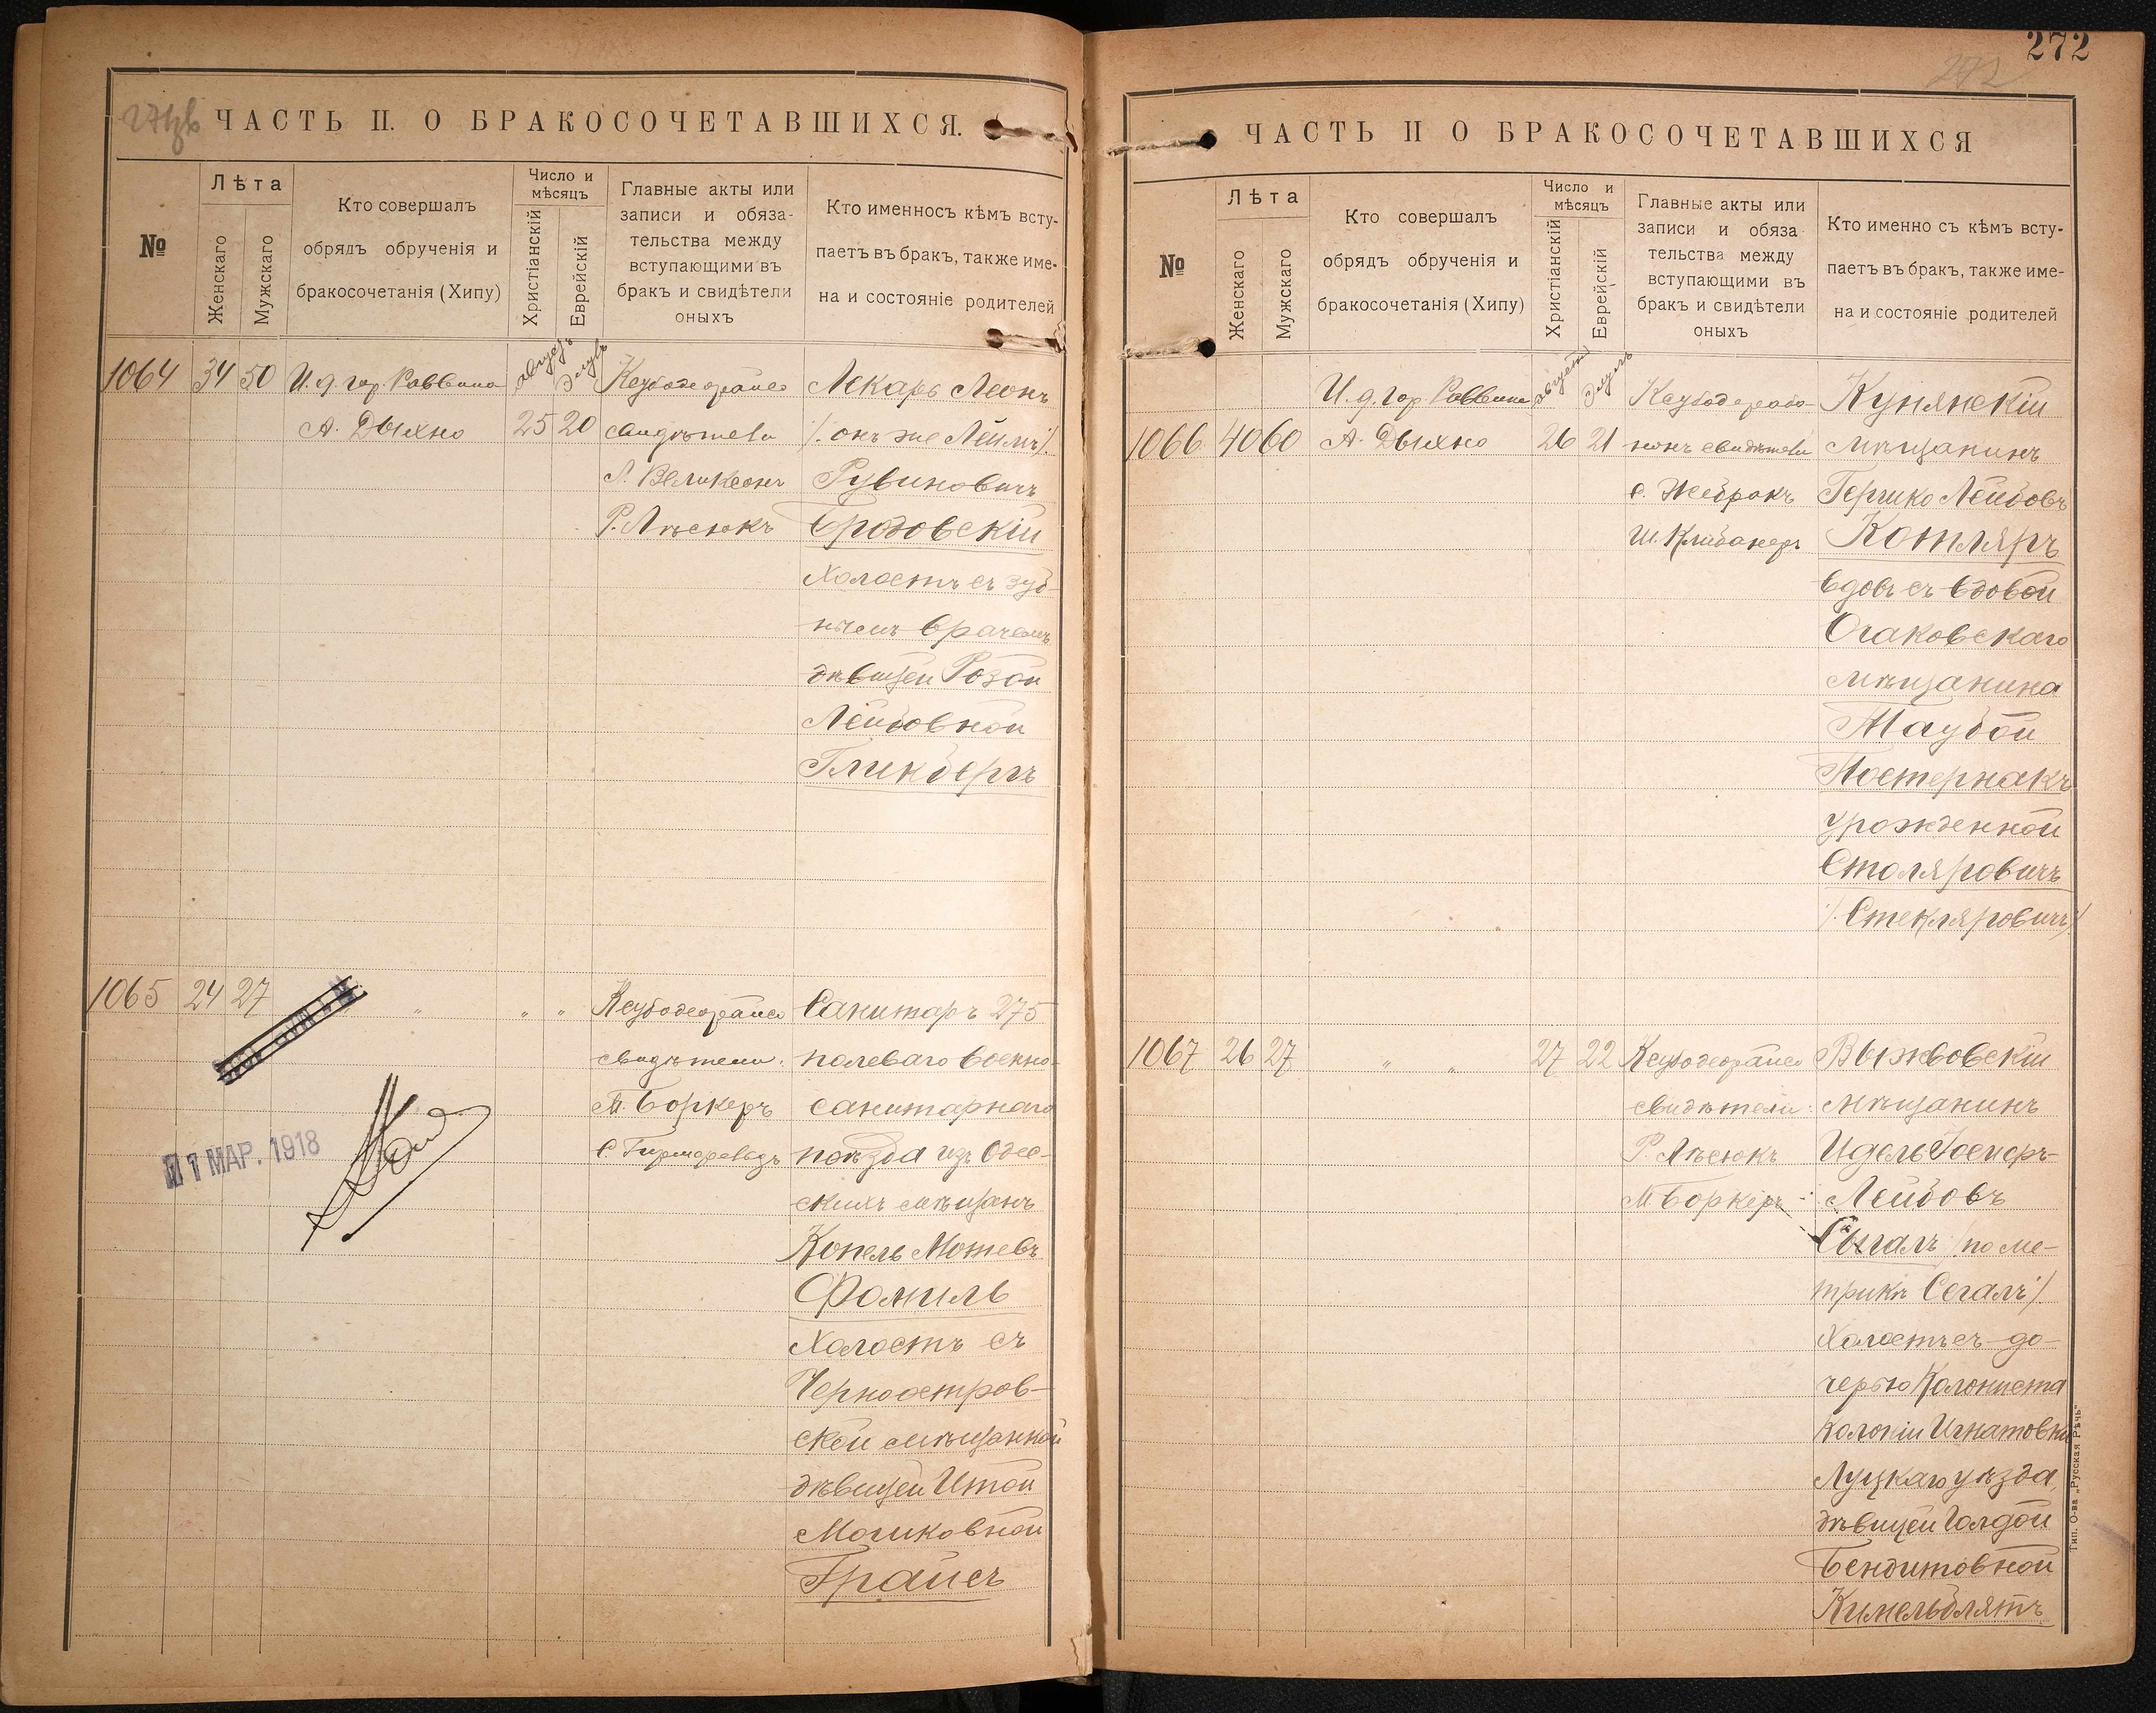 272
ЧАСТЬ II. О БРАКОСОЧЕТАВШИХСЯ.
№
Лѣта
Женскаго
Мужскаго
Кто совершалъ
обрядъ обрученія и
бракосочетанія (Хипу)
Число и
мѣсяцъ
Христіанскій
Еврейскій
Главные акты или
записи и обяза-
тельства между
вступающими въ
бракъ и свидѣтели
оныхъ
Кто именносъ кѣмъ всту-
паетъ въ бракъ, также име-
на и состояніе родителей
1064 34 50
И. д. гор. Раввина
А. Дыхно
Августъ
Элулъ
25 20
свидѣтели
Р. Лѣсюкъ
Лекарь Леонъ
/. онъ же Лейлъ ./
Рувиновичъ
Бродовскій
Холостъ съ зуб-
нымъ врачемъ
дѣвицей Розой
Лейбовной
Гликбергъ
1065 24 27
„ „ „
Кеубодеорайсо
свидѣтели:
М. Боркеръ
Санитаръ 275
полеваго военно-
санитарнаго
поѣзда изъ Одес-
скихъ мѣщанъ
Копель Мошевъ
Фомиль
Холостъ съ
Черноостров-
ской мѣщанкой
дѣвицей Итой
Мошковной
Грайсъ
11 МАР. 1918
ЧАСТЬ II О БРАКОСОЧЕТАВШИХСЯ
№
Лѣта
Женскаго
Мужскаго
Кто совершалъ
обрядъ обрученія и
бракосочетанія (Хипу)
Число и
мѣсяцъ
Христіанскій
Еврейскій
Главные акты или
записи и обяза
тельства между
вступающими въ
бракъ и свидѣтели
оныхъ
Кто именно съ кѣмъ всту-
паетъ въ бракъ, также име-
на и состояніе родителей
1066 40 60
И. д. гор. Раввина
А. Дыхно
Августъ
Элулъ
26 21
свидѣтели
С. Жебракъ
Ш. Клибанеръ
Кунянскій
мѣщанинъ
Гершко Лейбовъ
Котляръ
вдовъ съ вдовой
Очаковскаго
мѣщанина
Таубой
Постернакъ
урожденной
Столяровичъ
/. Стекляровичъ ./
1067 26 27
„ „
27 22
Кеубодеорайсо
свидѣтели:
Р. Лѣсюкъ
М Боркеръ
Выжвовскій
мѣщанинъ
Идель Іосифъ-
Лейбовъ
Сыгалъ /по ме-
трикѣ Сегалъ/.
Холостъ съ до-
черью Колониста
колоніи Игнатовки
Луцкаго уѣзда,
дѣвицей Голдой
Бендитовной
Кимельблятъ
Тип. О-ва „Русская Рѣчь“